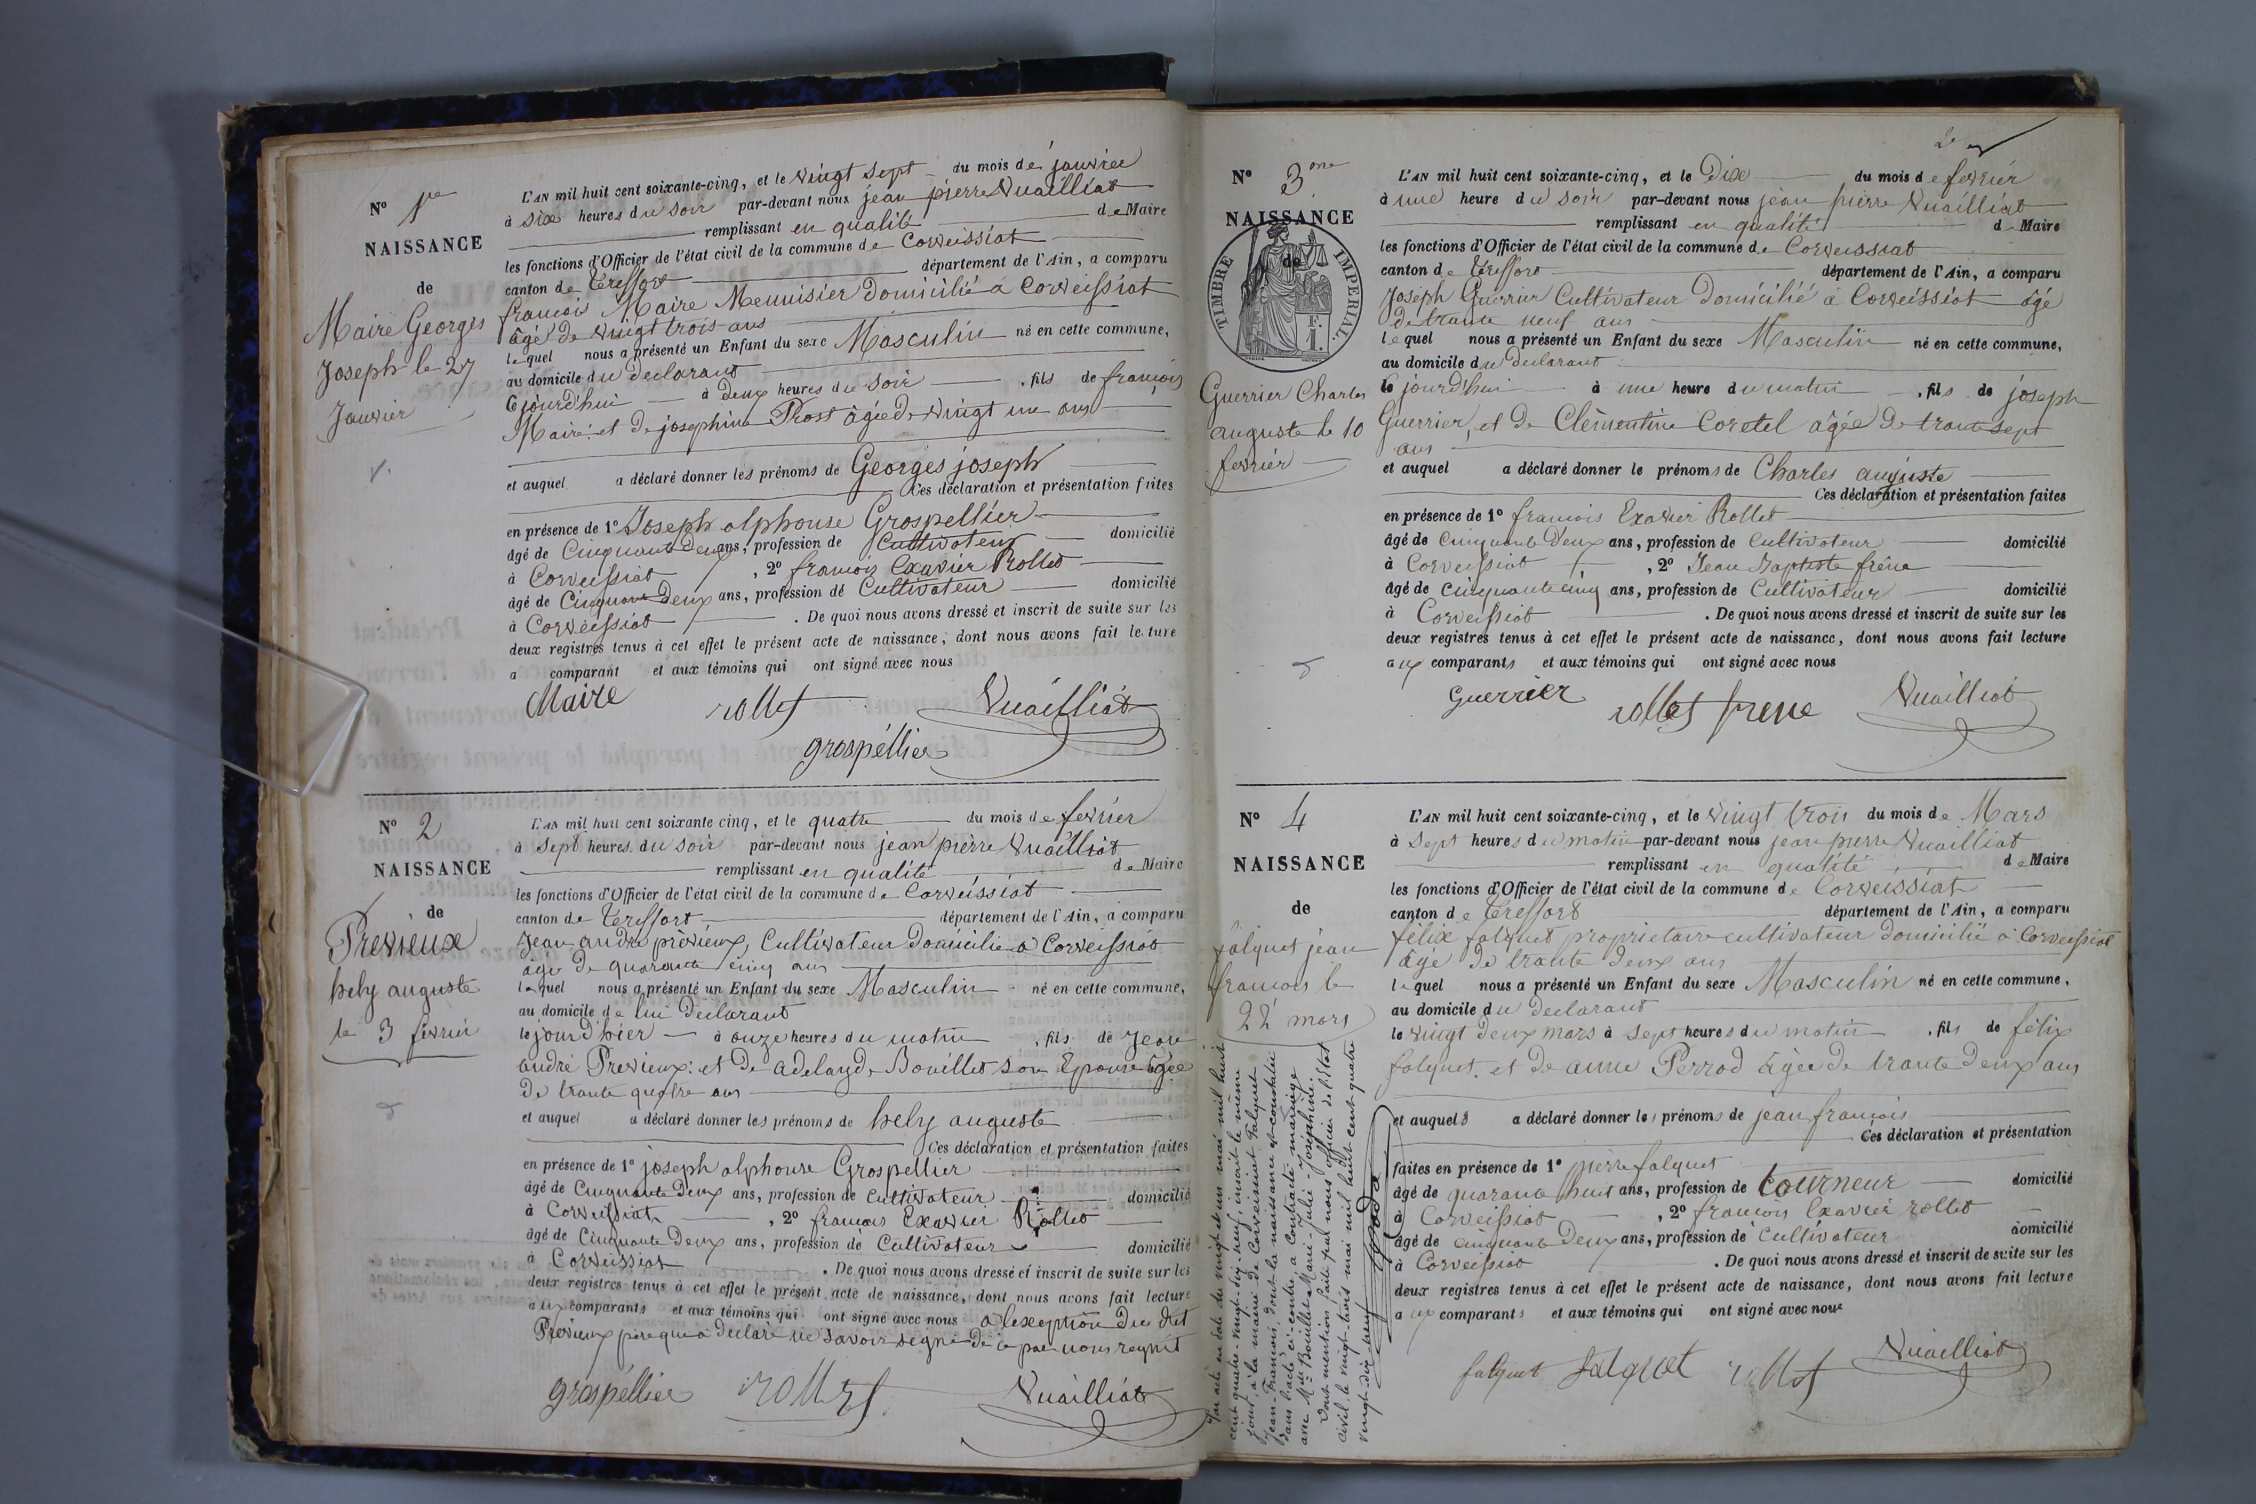 N° 1re
NAISSANCE
de
Maire Georges
Joseph le 27
Janvier
L'AN mil huit cent soixante-cinq, et le vingt sept du mois de janvier
à six heures du soir par-devant nous jean pierre Vuailliat
remplissant en qualité de Maire
les fonctions d'Officier de l'état civil de la commune de Corveissiat
canton de Treffort département de l'Ain, a comparu
francois Maire Menuisier domicilié a Corveissiat
âgé de vingt trois ans
lequel nous a présenté un Enfant du sexe Masculin né en cette commune,
au domicile du declarant
cejourd'hui à deux heures du soir, fils de françois
Maire et de josephine Prost âgée de vingt un ans
et auquel a déclaré donner les prénoms de Georges joseph
Ces déclaration et présentation faites
en présence de 1° Joseph alphonse Grospellier
âgé de Cinquante deux ans, profession de Cultivateur domicilié
à Corveissiat, 2° francois Exavier Rollet
âgé de Cinquante Deux ans, profession de Cultivateur domicilié
à Corveissiat. De quoi nous avons dressé et inscrit de suite sur les
deux registres tenus à cet effet le présent acte de naissance, dont nous avons fait lecture
a comparant et aux témoins qui ont signé avec nous
Maire rollet Vuailliat
grospéllier
N° 2
NAISSANCE
de
Prevìeux
hely auguste
le 3 fevrier
L'AN mil huit cent soixante cinq, et le quatre du mois de fevrier
à sept heures du soir par-devant nous jean pierre Vuailliat
remplissant en qualité de Maire
les fonctions d'Officier de l'état civil de la commune de Corveissiat
canton de Treffort département de l'Ain, a comparu
Jean andré prèvieux, Cultivateur Domicilié a Corveissiat
âgé de quarante cinq ans
lequel nous a présenté un Enfant du sexe Masculin né en cette commune,
au domicile de lui Declarant
lejourd'hier à onze heures du matin, fils de Jean
andré Previeux: et de adelayde Bouillet son Epouse âgée
de trante quatre ans
et auquel a déclaré donner les prénoms de hely auguste
Ces déclaration et présentation faites
en présence de 1° joseph alphonse Grospellier
âgé de Cinquante Deux ans, profession de Cultivateur domicilié
à Corveissiat, 2° francois Exavier Rollet
âgé de Cinquante Deux ans, profession de Cultivateur domicilié
à Corveissiat. De quoi nous avons dressé et inscrit de suite sur les
deux registres tenus à cet effet le présent acte de naissance, dont nous avons fait lecture
aux comparants et aux témoins qui ont signé avec nous a l'exeption du dit
Prévieux père qui a declaré ne savoir signé de ce par nous requit
grospéllier rollet Vuailliat
2
N° 3me
NAISSANCE
de
TIMBRE IMPERIAL.
F.
1.
Guerrier Charles
auguste le 10
fevrier
L'AN mil huit cent soixante-cinq, et le Dix du mois de fevrier
à une heure du soir par-devant nous jean pierre Vuailliat
remplissant en qualité de Maire
les fonctions d'Officier de l'état civil de la commune de Corveissiat
canton de Treffort département de l'Ain, a comparu
Joseph Guerrier Cultivateur Domicilié à Corveissiat âgé
de trante neuf ans
lequel nous a présenté un Enfant du sexe Masculin né en cette commune,
au domicile du declarant
cejourd'hui à une heure du matin, fils de joseph
Guerrier, et de Clèmentine Coretel âgée de trante sept
ans
et auquel a déclaré donner le prénoms de Charles auguste
Ces déclaration et présentation faites
en présence de 1° francois Exavier Rollet
âgé de cinquante deux ans, profession de Cultivateur domicilié
à Corveissiat, 2° Jean Baptiste frêne
âgé de cinquante cinq ans, profession de Cultivateur domicilié
à Corveissiat. De quoi nous avons dressé et inscrit de suite sur les
deux registres tenus à cet effet le présent acte de naissance, dont nous avons fait lecture
aux comparants et aux témoins qui ont signé avec nous
Guerrier rollet frene Vuailliat
N° 4
NAISSANCE
de
falquet jean
francois le
22 mars
L'AN mil huit cent soixante-cinq, et le vingt trois du mois de Mars
à Sept heures du matin par-devant nous jean pierre Vuailliat
remplissant en qualité de Maire
les fonctions d'Officier de l'état civil de la commune de Corveissiat
canton de Treffort département de l'Ain, a comparu
félix falquet proprietaire cultivateur domicilié à Corveissiat
âgé de trante deux ans
lequel nous a présenté un Enfant du sexe Masculin né en cette commune,
au domicile du declarant
le vingt deux mars à sept heures du matin, fils de félix
falquet. et de anne Perrod âgée de trante deux ans
et auquel a déclaré donner les prénoms de jean francois
Ces déclaration et présentation
faites en présence de 1° pierre falquet
âgé de quarante huit ans, profession de tourneur domicilié
à Corveissiat, 2° francois Exavier rollet
âgé de cinquante Deux ans, profession de Cultivateur domicilié
à Corveissiat. De quoi nous avons dressé et inscrit de suite sur les
deux registres tenus à cet effet le présent acte de naissance, dont nous avons fait lecture
aux comparants et aux témoins qui ont signé avec nous
falquet falquet rollet Vuailliat
Par acte en date du vingt-un mai mil huit
cent quatre-vingt-dix-neuf, inscrit le même
jour à la mairie de Corveissiat Falquet
Jean-François, dont la naissance est constatée
dans l'acte ci-contre, a contracté mariage
avec Mlle Bouillet Marie-Julie-Joséphine.
Dont mention faite par nous officier de l'état
civil, le vingt-trois mai mil huit cent quatre
vingt-dix-neuf